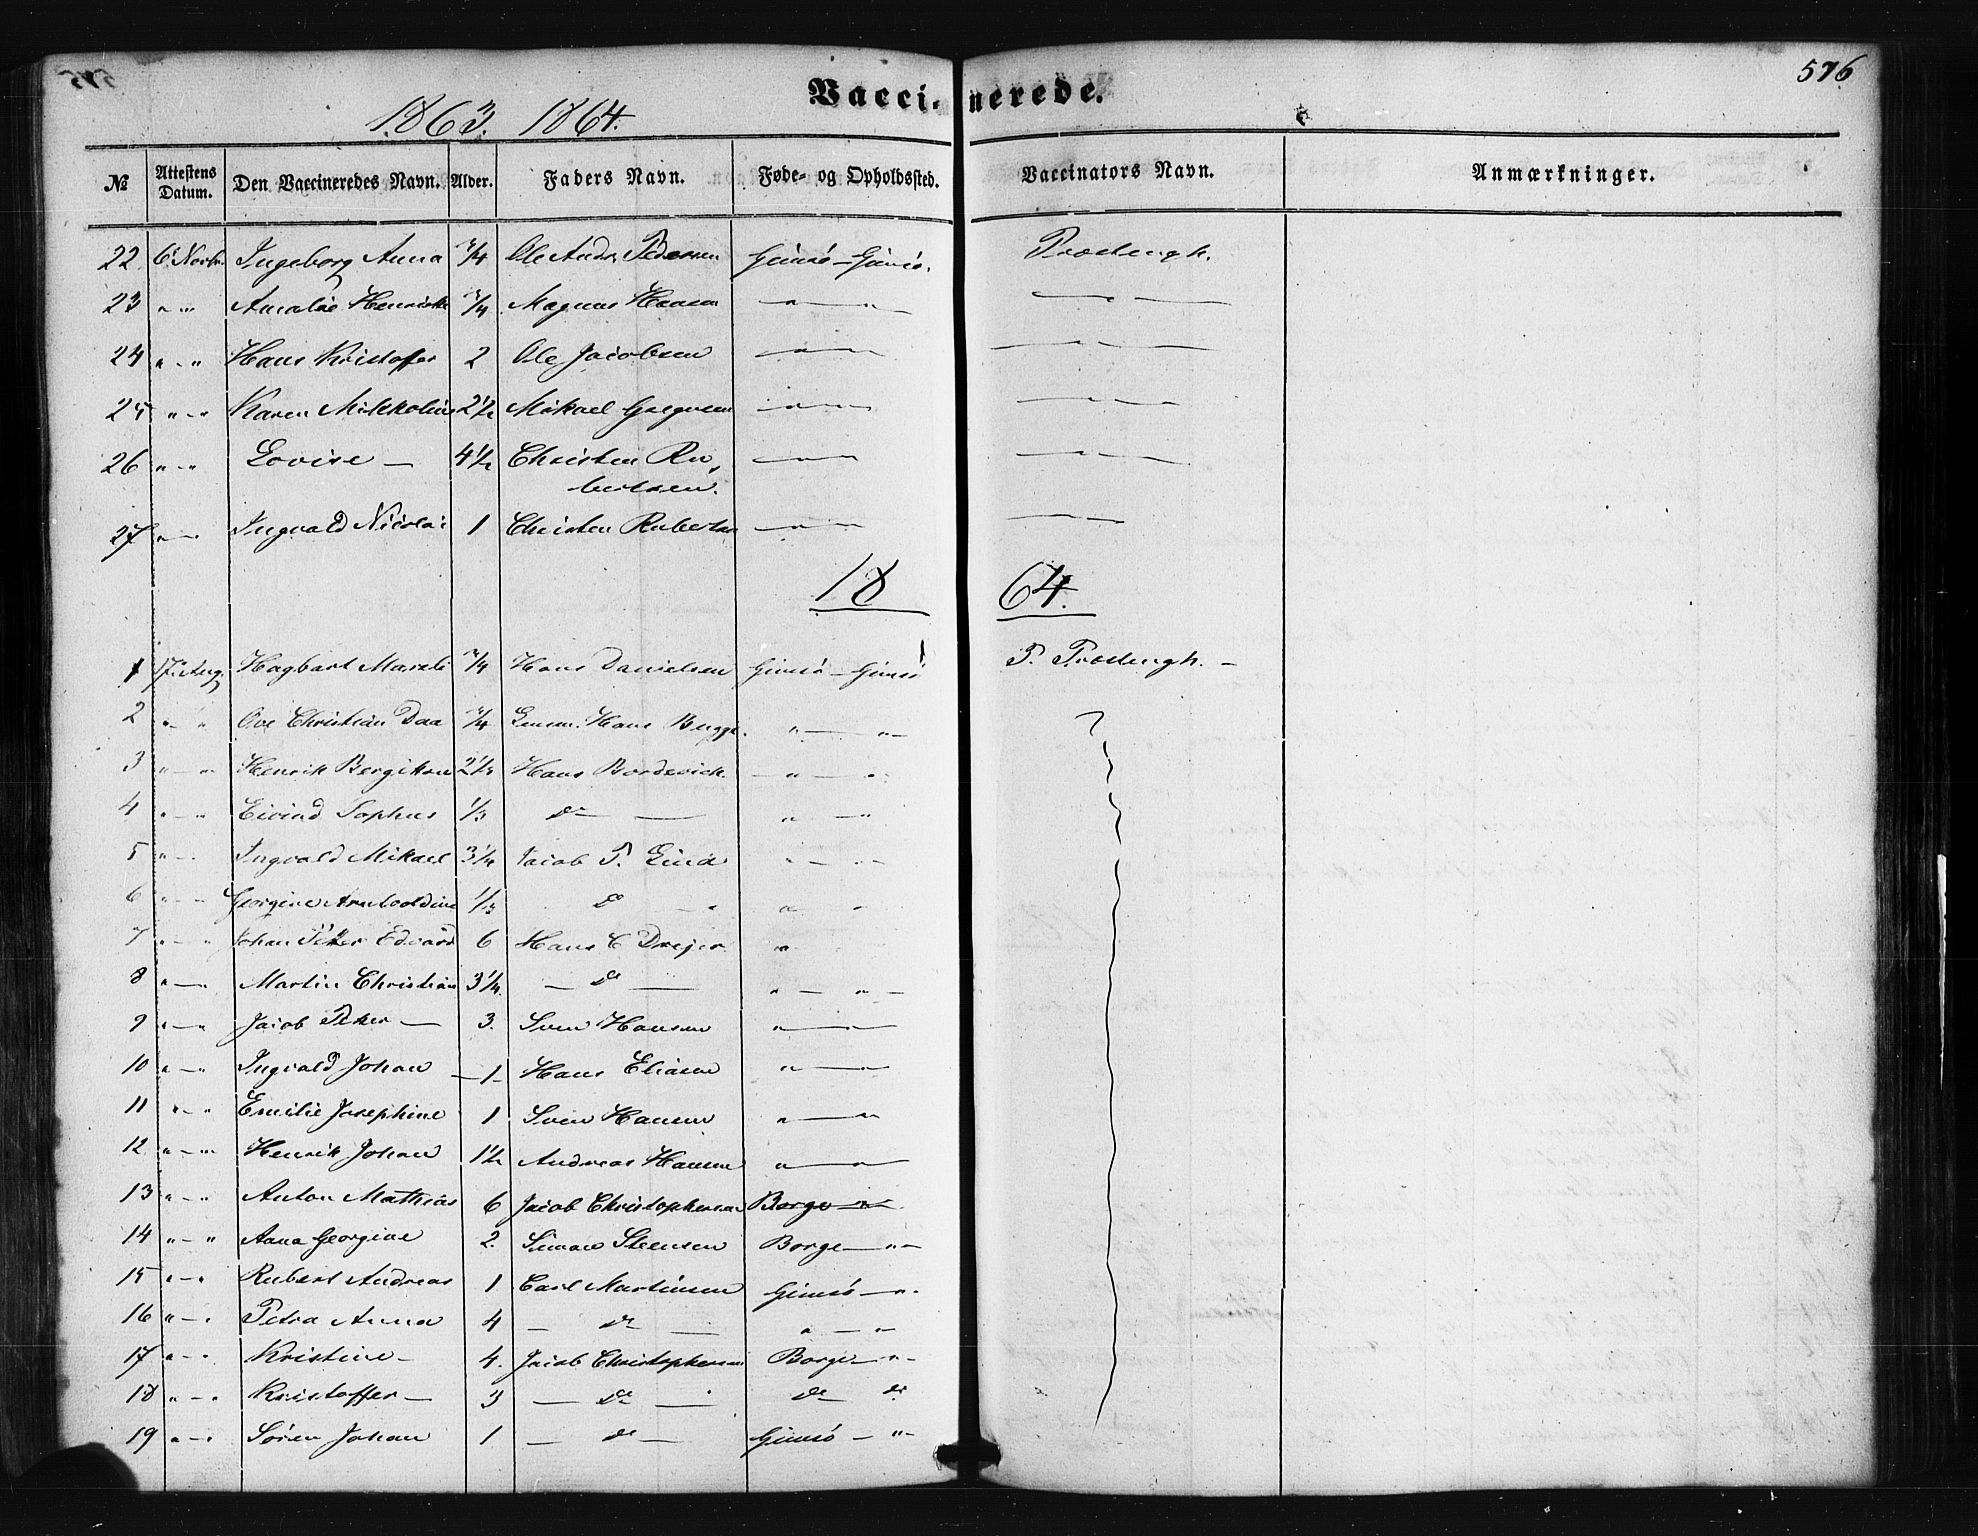 576
Vaccinerede.
1863. 1864.
№ Attestens Datum. Den Vaccineredes Navn. Alder. Faders Navn. Føde- og Opholdssted. Vaccinators Navn. Anmærkninger.
22 6 Novbr. Ingeborg Anna 3/4 Ole Andr. Pedersen Gimsö - Gimsö.
23 " - " 3/4 Magnus Hansen " — "
24 " - " Hans Kristoffer 2 Ole Jacobsen — " —
25 " - " Karen 2 1/2 Mikael — " —
26 " - " Lovise — 4 1/2 Christen Ru-
bertsen.
27 " - Ingvald Nicolai 1 Christen Rubertsen — " —
1864.
1 17 Aug. Hagbart 3/4 Hans Danielsen Gimsö - Gimsö
2 " - " Ove Christian Daa 3/4 Hans Bugge. " — "
3 " - " Henrik — " — "
4 " - " Eivind Sophus 1/3 do — " — "
5 " - Ingvald Mikael 3 1/4 Jacob P. " — "
6 " - " Georgine 1/3 do " "
7 " - " Johan Peter Edvard 6 Hans C Drejer "
8 " - Martin Christian 3 1/4. — do — " — "
9 " - " Jacob Peter — 3. Sven Hansen " — "
10 " - " Ingvald Johan — 1 - Hans Eliasen " — "
11 " - " Emilie Josephine 1 Sven Hansen " — "
12 " - " Henrik Johan 1 1/2 Andreas Hansen " — "
13 " - " Anton Mathias 6 Jacob Christophersen Borge - "
14 " - " Anna Georgine 2. Simon Steensen Borge - " -
15 " - " Rubert Andreas 1 Carl Martinsen Gimsö - ".
16 " - " Petra Anna 4 — do — " — "
17 " - " Kristine - 4. Jacob Christophersen Borge - " -
18 " - " Kristoffer — 3 — do — do do
19 " - " Sören Johan 1 — do — Gimsö - " -